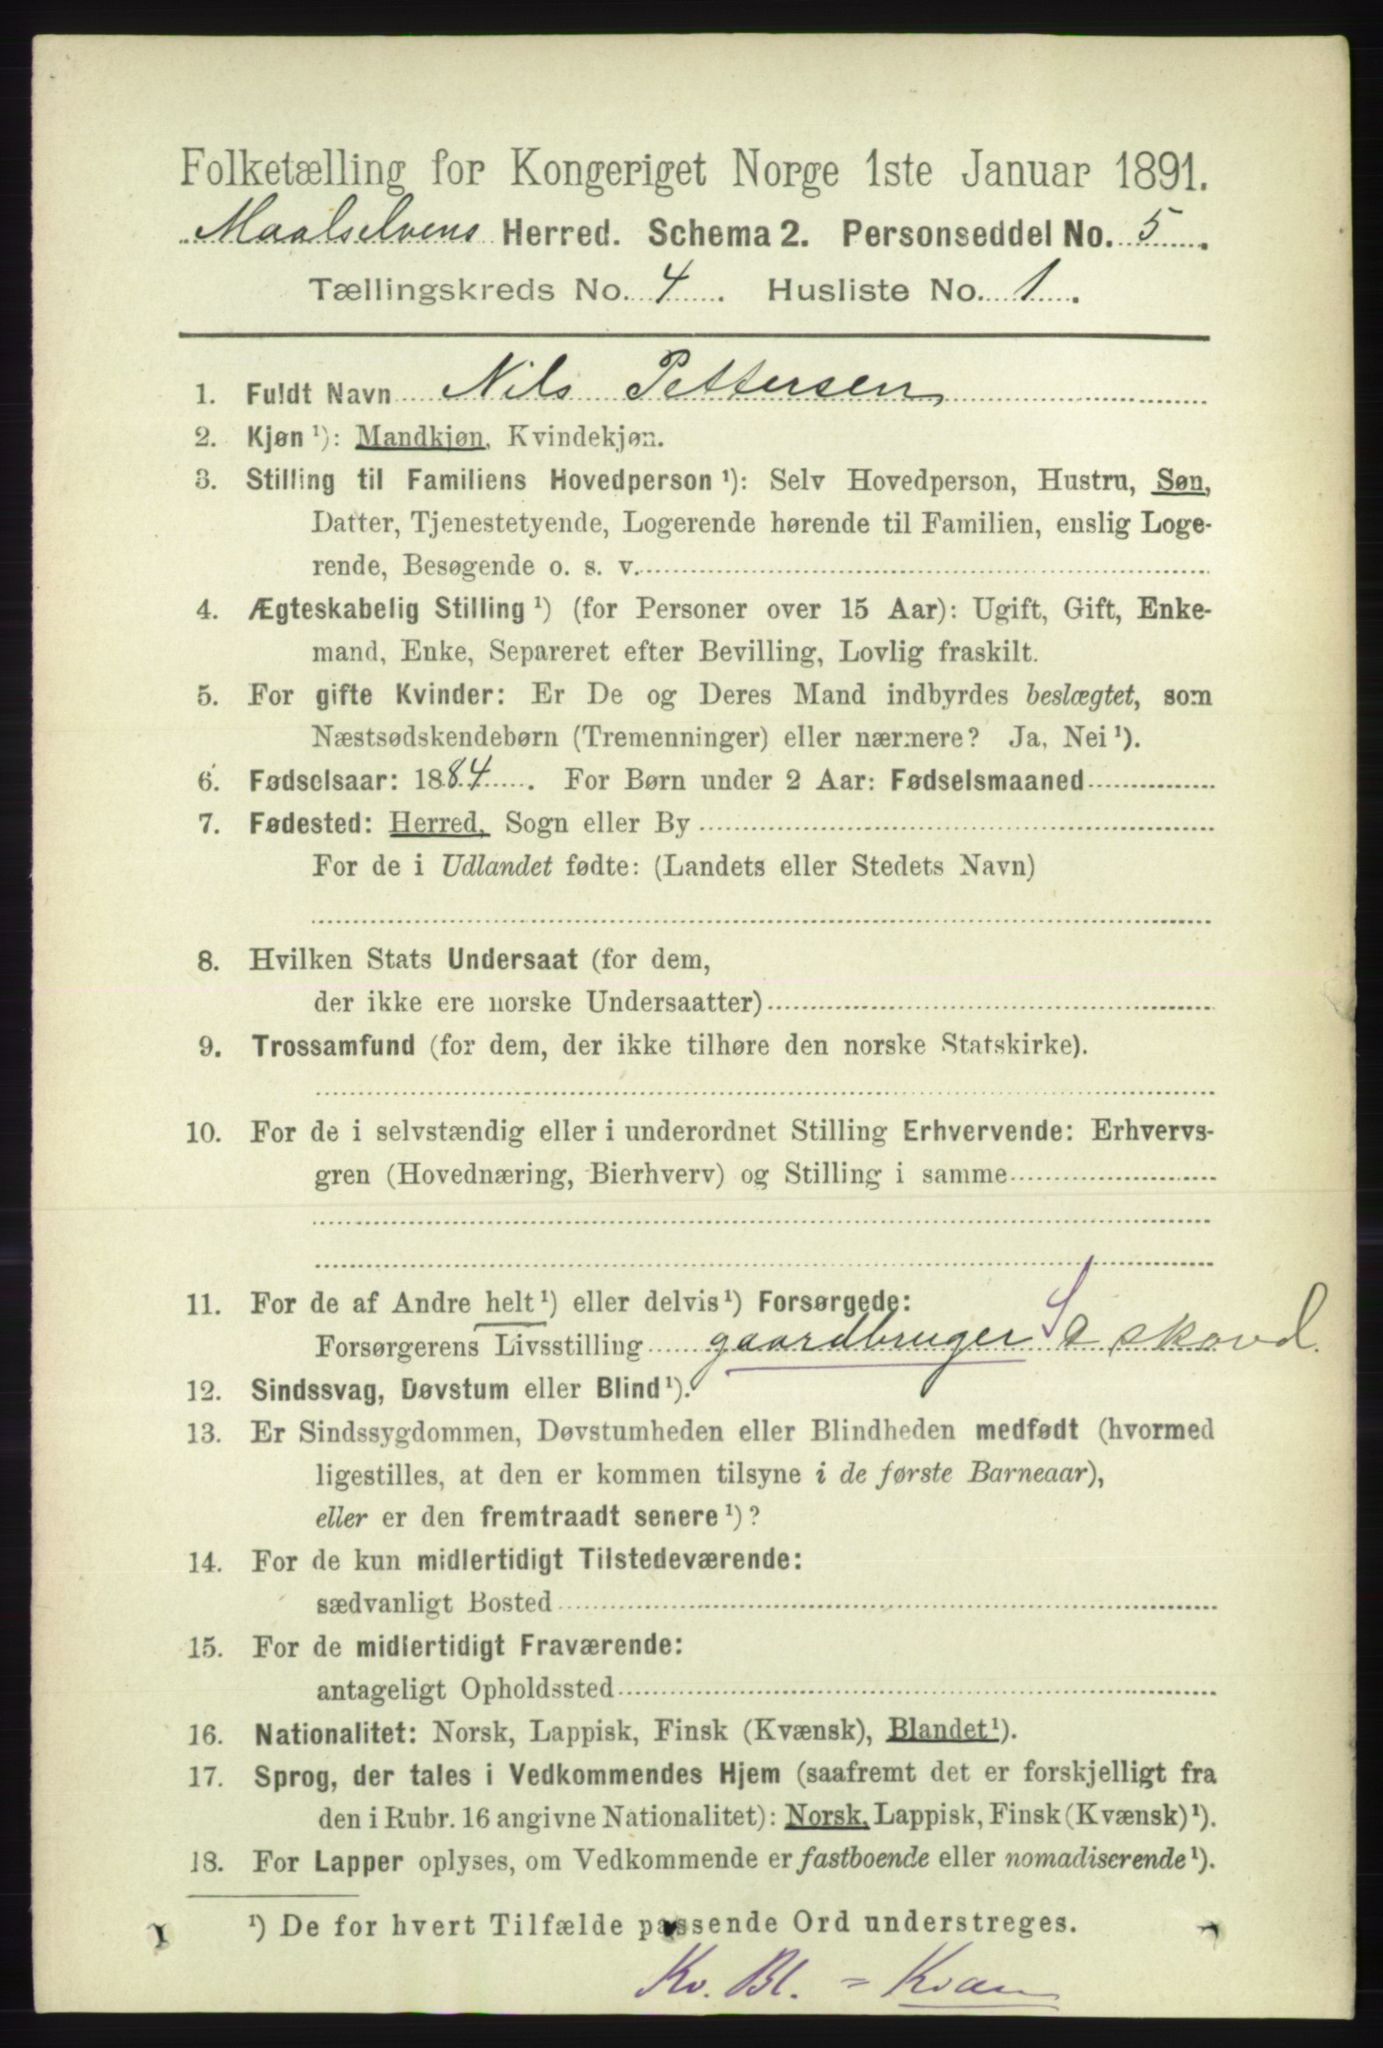 Folketælling for Kongeriget Norge 1ste Januar 1891.
Maalselvens Herred. Schema 2. Personseddel No. 5.
Tællingskreds No. 4. Husliste No. 1.
1. Fuldt Navn Nils Pettersen
2. Kjøn¹): Mandkjøn, Kvindekjøn.
3. Stilling til Familiens Hovedperson¹): Selv Hovedperson, Hustru, Søn,
Datter, Tjenestetyende, Logerende hørende til Familien, enslig Loge-
rende, Besøgende o. s. v.
4. Ægteskabelig Stilling¹) (for Personer over 15 Aar): Ugift, Gift, Enke-
mand, Enke, Separeret efter Bevilling, Lovlig fraskilt.
5. For gifte Kvinder: Er De og Deres Mand indbyrdes beslægtet, som
Næstsødskendebørn (Tremenninger) eller nærmere? Ja, Nei¹).
6. Fødselsaar: 1884. For Børn under 2 Aar: Fødselsmaaned
7. Fødested: Herred, Sogn eller By
For de i Udlandet fødte: (Landets eller Stedets Navn)
8. Hvilken Stats Undersaat (for dem,
der ikke ere norske Undersaatter)
9. Trossamfund (for dem, der ikke tilhøre den norske Statskirke).
10. For de i selvstændig eller i underordnet Stilling Erhvervende: Erhvervs-
gren (Hovednæring, Bierhverv) og Stilling i samme
11. For de af Andre helt¹) eller delvis¹) Forsørgede:
Forsørgerens Livsstilling gaardbruger S skovd.
12. Sindssvag, Døvstum eller Blind¹).
13. Er Sindssygdommen, Døvstumheden eller Blindheden medfødt (hvormed
ligestilles, at den er kommen tilsyne i de første Barneaar),
eller er den fremtraadt senere¹)?
14. For de kun midlertidigt Tilstedeværende:
sædvanligt Bosted
15. For de midlertidigt Fraværende:
antageligt Opholdssted
16. Nationalitet: Norsk, Lappisk, Finsk (Kvænsk), Blandet¹).
17. Sprog, der tales i Vedkommendes Hjem (saafremt det er forskjelligt fra
den i Rubr. 16 angivne Nationalitet): Norsk, Lappisk, Finsk (Kvænsk)¹).
18. For Lapper oplyses, om Vedkommende er fastboende eller nomadiserende¹).
¹) De for hvert Tilfælde passende Ord understreges.
Kv. Bl. = Kvæn